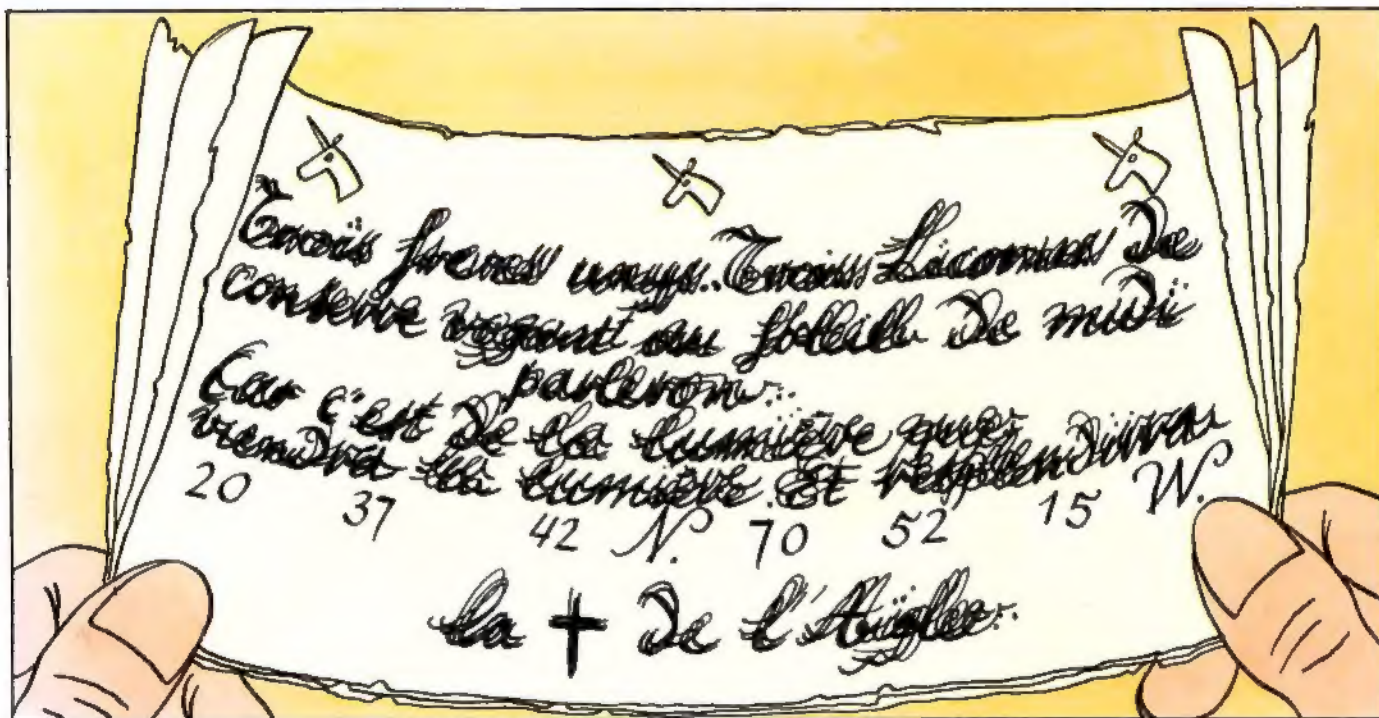 Trois freres unys. Trois Licornes de
conserve vogant au soleil de midi
parleron
Car c'est de la lumière que
viendra la lumière. Et resplendira
20 37 42 N. 70 52 15 W.
la † de l'Aigle